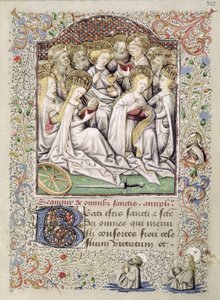 Sequitur de omnibus sanctis. antiph.
Beati estis sancti
omnes qui merui
sti consortes fieri cele
stium virtutum et